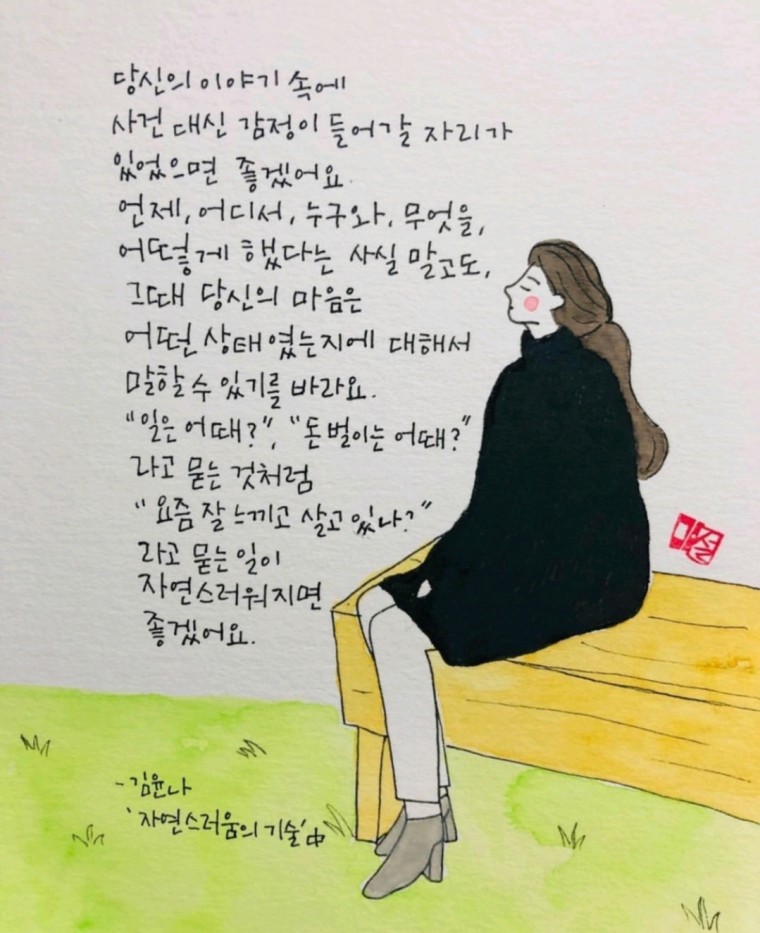 당신의 이야기 속에
사건 대신 감정이 들어갈 자리가
있었으면 좋겠어요.
언제, 어디서, 누구와, 무엇을,
어떻게 했다는 사실 말고도,
그때 당신의 마음은
어떤 상태였는지에 대해서
말할 수 있기를 바라요.
"일은 어때?", "돈벌이는 어때?"
라고 묻는 것처럼
"요즘 잘 느끼고 살고 있나?"
라고 묻는 일이
자연스러워지면
좋겠어요.
미설
-김윤나
'자연스러움의 기술'中